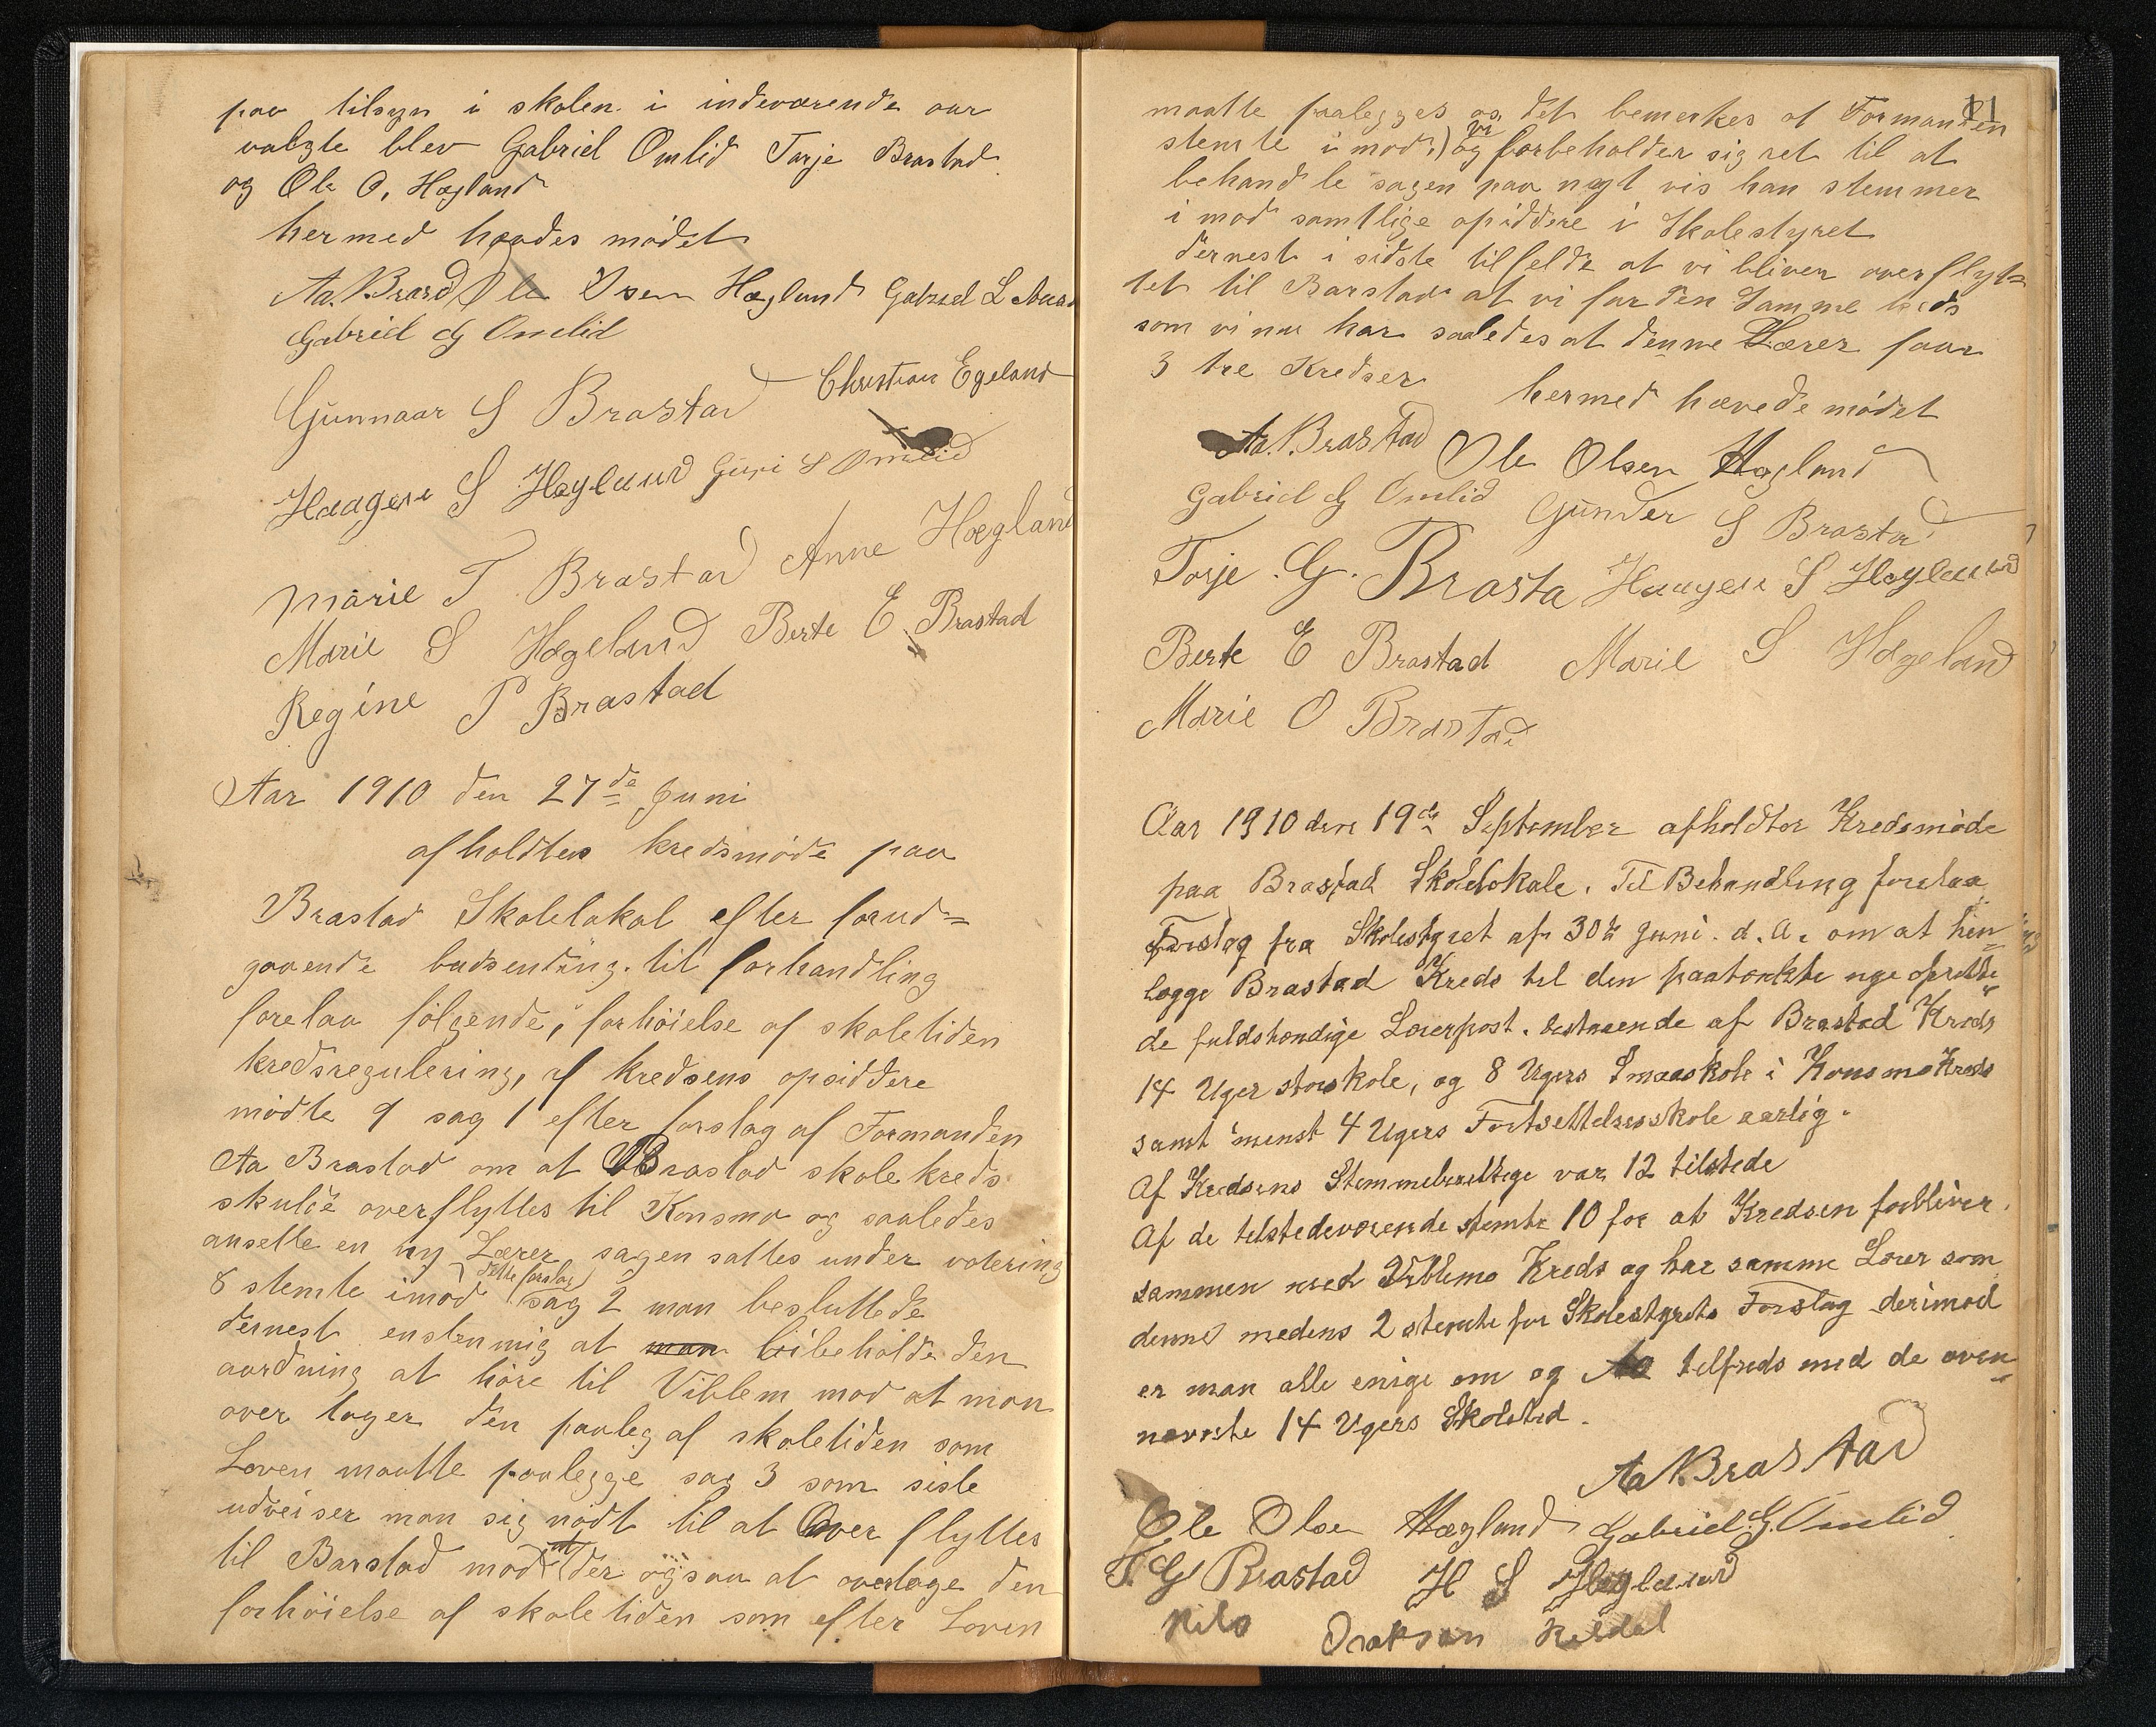 paa tilsyn i skolen i indeværende aar
valgte blev Gabriel Omlid Tarje Brastad
og Ole O. Hægland
hermed hævdes mødet
Aa. Brasd Ole Osen Hægland Gabriel L
Gabriel G Omlid
Gunnaar S Brastad Christian Egeland
Haagen S Høyland Guri S Omlid
Marie T Brastad Anne Hægland
Marie S Hægeland Berte E Brastad
Regine P Brastad
Aar 1910 den 27de Juni
afholdtes kredsmøde paa
Brastad Skolelokal efter forud=
gaaende budsending. til forhandling
forelaa følgende, forhøielse af skoletiden
kredsregulering, af kredsens opsiddere
mødte 9 sag 1 efter forslag af Formanden
Aa Brastad om at Brastad skolekreds
skulde overflyttes til Konsmo og saaledes
ansette en ny Lærer sagen sattes under votering
8 stemte imod dette forslag sag 2 man besluttede
dernest enstemmig at man bibeholde den
aordning at høre til Viblem mod at man
over tager den paaleg af skoletiden som
Loven maatte paalegge sag 3 som siste
udveiser man sig nødt til at Over flyttes
til Barstad mod at der ogsaa at overtage den
forhøielse af skoletiden som efter Loven
11
maatte paalegges os, det bemerkes at Formanden
stemte i mod.) og vi forbeholder sig ret til at
behandle sagen paa nyt vis han stemmer
i mod samtlige opsiddere i Skolestyret
dernest i sidste tilfelde at vi bliver overflyt=
tet til Barstad at vi far den samme
som vi nu har saaledes at denne Lærer faar
3 tre Kredser hermed hævede mødet
Aa. Brastad Ole Olsen Hægland
Gabriel G Omlid Gunder S Brastad
Torje . G. Brasta Haagen S Høyland
Berte E Brastad Marie S Hægeland
Marie O Brastad
Aar 1910 den 19de September afholdtes Kredsmøde
paa Brastad Skolelokale. Til Behandling forelaa
Forslag fra Skolestyret af 30te Juni. d. A. om at hen=
lægge Brastad Kreds til den paatænkte nye oprette=
de fuldstændige Lærerpost. bestaaende af Brastad Kreds
14 Uger storskole, og 8 Ugers Smaaskole i Konsmo Kreds
samt mindst 4 Ugers Fortsettelsesskole aarlig.
Af Kredsens Stemmeberettige var 12 tilstede
Af de tilstedeværende stemte 10 for at Kredsen forbliver
sammen med Viblemo Kreds og har samme Lærer som
denne medens 2 stemte for Skolestyrets Forslag derimod
er man alle enige om og tilfreds med de oven=
nævnte 14 Ugers Skoletid.
Aa Brastad
Ole Olsen Hægland Gabriel G. Omlid
T. G Brastad H S Høyland
Nils